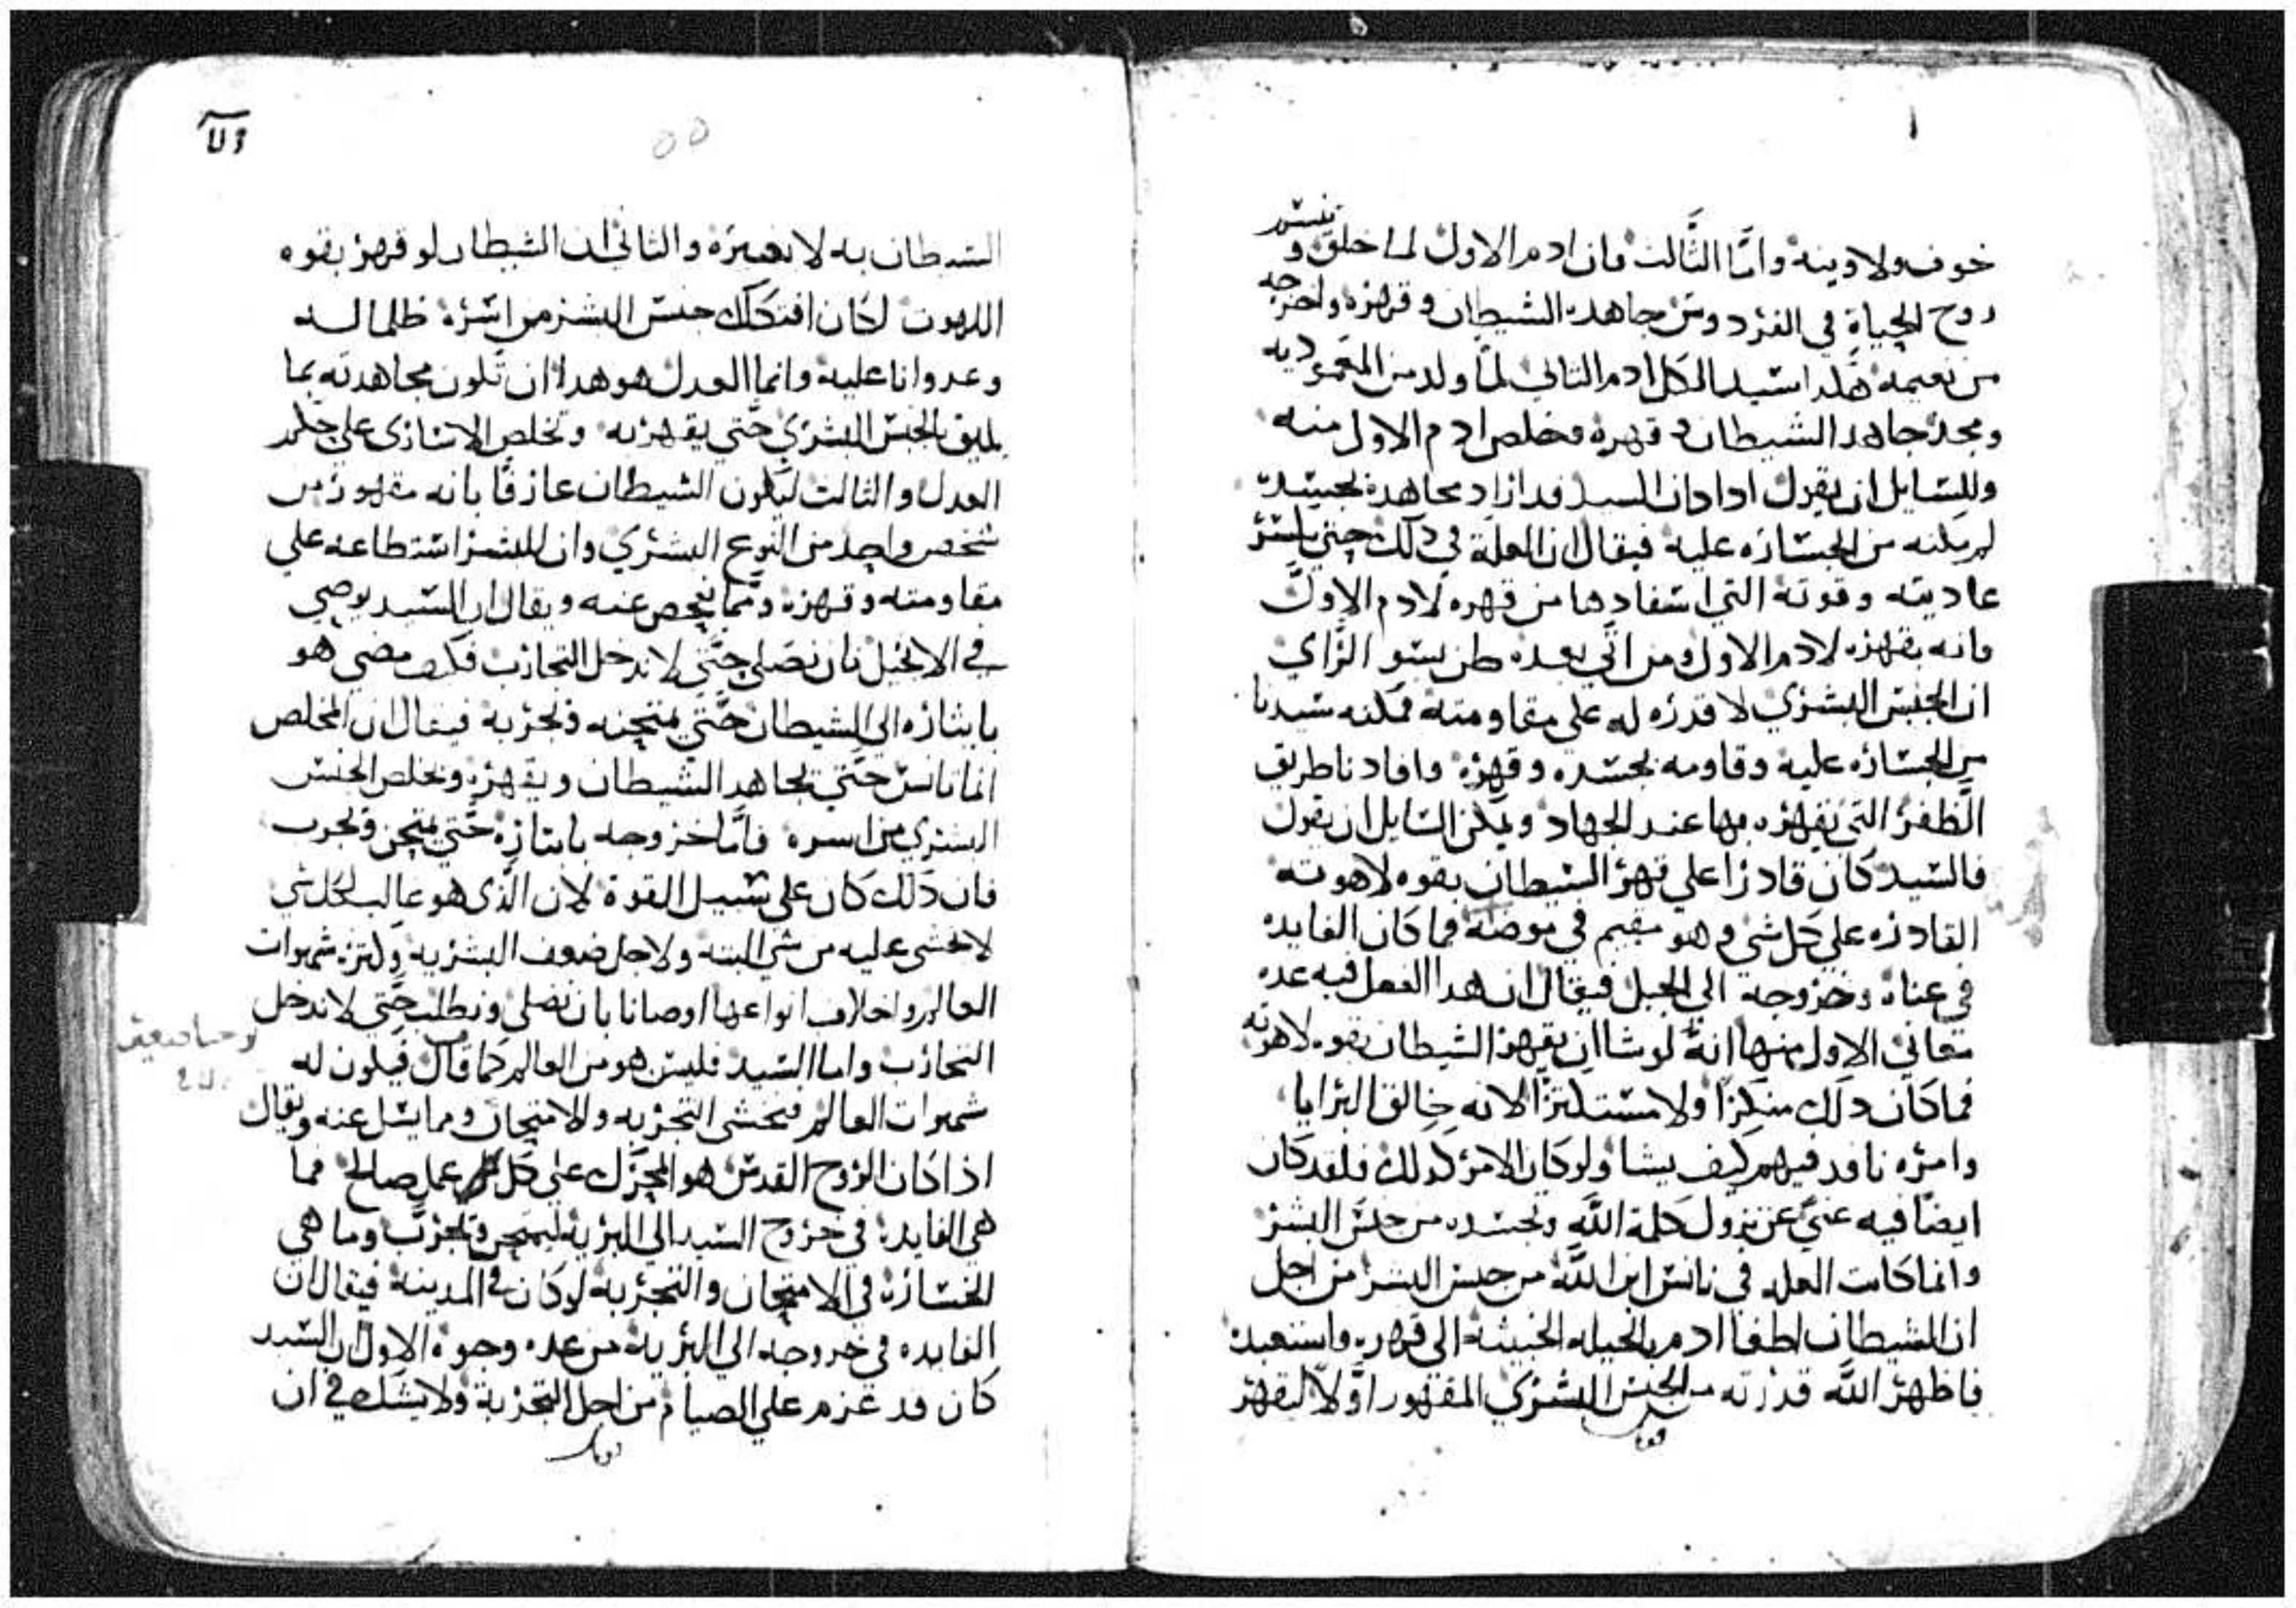 خوف ولا رينه واما الثالث فان ادم الاول لما خلق و
روح الحياة في الفردوس جاهده الشيطان وقهره واخرجه
من نعيمه هكدا سيد الكل ادم التاني لما ولد من المعموديه
ومجد جاهد الشيطان وقهره فخلص ادم الاول منه
وللسايل ان يقول ادا كان السيد قد اراد مجاهدة بجسده
لم يكنه من الجساره عليه فيقال ان العلة في دلك حتي
عاديته وقوته التي استفادها من قهره لادم الاول
فانه بقهره لادم الاول ومن اتي بعده ظن بسو الراي
ان الجنس البشري لا قدره له علي مقاومته فمكنه سيدنا
من الجساره عليه وقاومه بجسده وقهره وافادنا طريق
الظفر التي نقهره بها عند الجهاد ويمكن السايل ان يقول
فالسيد كان قادرا علي قهر الشيطان بقوه لاهوته
القادره علي كل شي وهو مقيم في موضعه فما كان الفايده
في عناه وخروجه الي الجبل فيقال ان هدا الفعل فيه عده
معاني الاول منها انه لو شا ان يقهر الشيطان بقوه لاهوته
فما كان دلك منكرا ولا مستكترا لانه خالق البرايا
وامره نافد فيهم كيف يشا ولو كان الامر كدلك فلقد كان
ايضا فيه غني عن نزول كلمة الله وتجسده من جنس البشر
وانما كانت العله في تانس ابن الله من جنس البشر من اجل
ان الشيطان لطغا ادم بالحيله الخبيثة الي قهره واستعبده
فاظهر الله قدرته من الجنس البشري المقهور اولا ليقهر
الشيطان به لا بغيره والثاني ان الشيطان لو قهر بقوه
اللاهوت لكان افتكاك جنس البشر من اسره ظلما له
وعدوانا عليه وانما العدل هو هدا ان تكون مجاهدته بما
يليق بالجنس البشري حتي يقهر به وتخلص الاساري علي حكم
العدل والثالت ليكون الشيطان عارفا بانه مقهور من
شخص واحد من النوع البشري وان للبشر استطاعه علي
مقاومته وقهره ومما يفحص عنه ويقال ان السيد يوصي
في الانجيل بان نصلي حتي لا ندخل التجارب فكيف مضي هو
بايثاره الي الشيطان حتي يمتحنه ويجربه فيقال ان المخلص
انما تانس حتي يجاهد الشيطان ويقهره ويخلص الجنس
البشري من اسره فاما خروجه بايثاره حتي يمتحن ويجرب
فان دلك كان علي سبيل القوة لان الذي هو غالب لكل شي
لا يخشى عليه من شي البته ولاجل ضعف البشريه وكثرة شهوات
العالم واختلاف انواعها اوصانا بان نصلي ونطلب حتي لا ندخل
التجارب واما السيد فليس هو من العالم كما قال فيكون له
شهوات العالم فيخشى التجربه والامتحان ومما يسل عنه ويقال
اذا كان الروح القدس هو المحرك علي كل عمل صالح فما
هي الفايده في خروج السيد الي البريه ليمتحن ويجرب وما هي
الخساره في الامتحان والتجربة لو كان في المدينة فيقال ان
الفايده في خروجه الي البرية من عده وجوه الاول ان السيد
كان قد عزم علي الصيام من اجل التجربة ولا يشك في ان